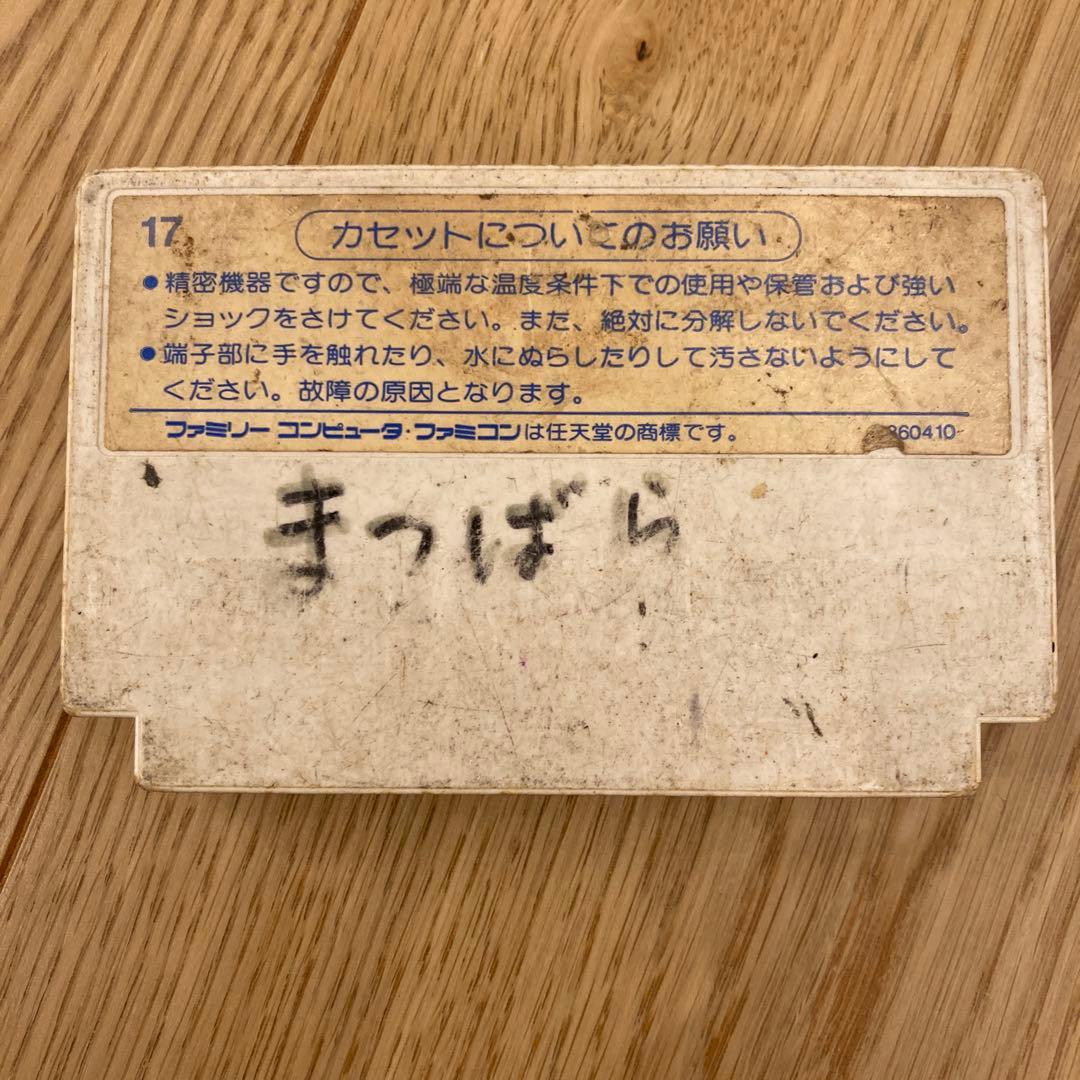 17
カセットについてのお願い
●精密機器ですので、極端な温度条件下での使用や保管および強い
ショックをさけてください。また、絶対に分解しないでください。
●端子部に手を触れたり、水にぬらしたりして汚さないようにして
ください。故障の原因となります。
ファミリー コンピュータ・ファミコンは任天堂の商標です。 860410
まつばら